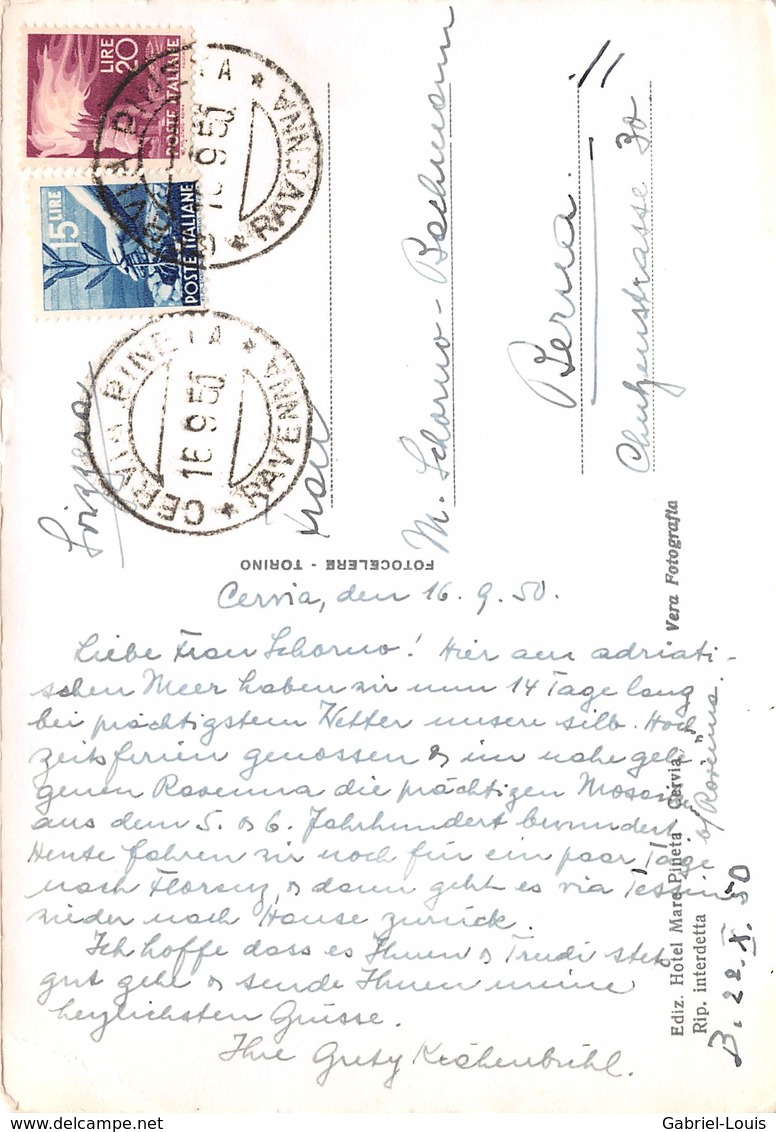 LIRE 20
POSTE ITALIANE
15 LIRE
POSTE ITALIANE
CERVIA PINETA * RAVENNA *
16 9 50
CERVIA PINETA * RAVENNA *
16 9 50
Svizzera
Frau
M. Schorno - Bachmann
Berna.
Chutzenstrasse 30
FOTOCELERE - TORINO
Vera Fotografia
Ediz. Hotel Mare Pineta Cervia
Rip. interdetta
b/ Ravenna.
B. 22. X. 50
Cervia, den 16. 9. 50.
Liebe Frau Schorno! Hier am adriati-
schen Meer haben wir nun 14 Tage lang
bei prächtigstem Wetter unsere silb. Hoch
zeitsferien genossen & im nahe gele
genen Ravenna die prächtigen Mosaiken
aus dem 5. & 6. Jahrhundert bewundert.
Heute fahren wir noch für ein paar Tage
nach Florenz, & dann geht es via Tessin
wieder nach Hause zurück.
Ich hoffe dass es Ihnen & Trudi stets
gut gehe & sende Ihnen meine
herzlichsten Grüsse.
Ihre Grety Kächenbühl.
Gabriel-Louis